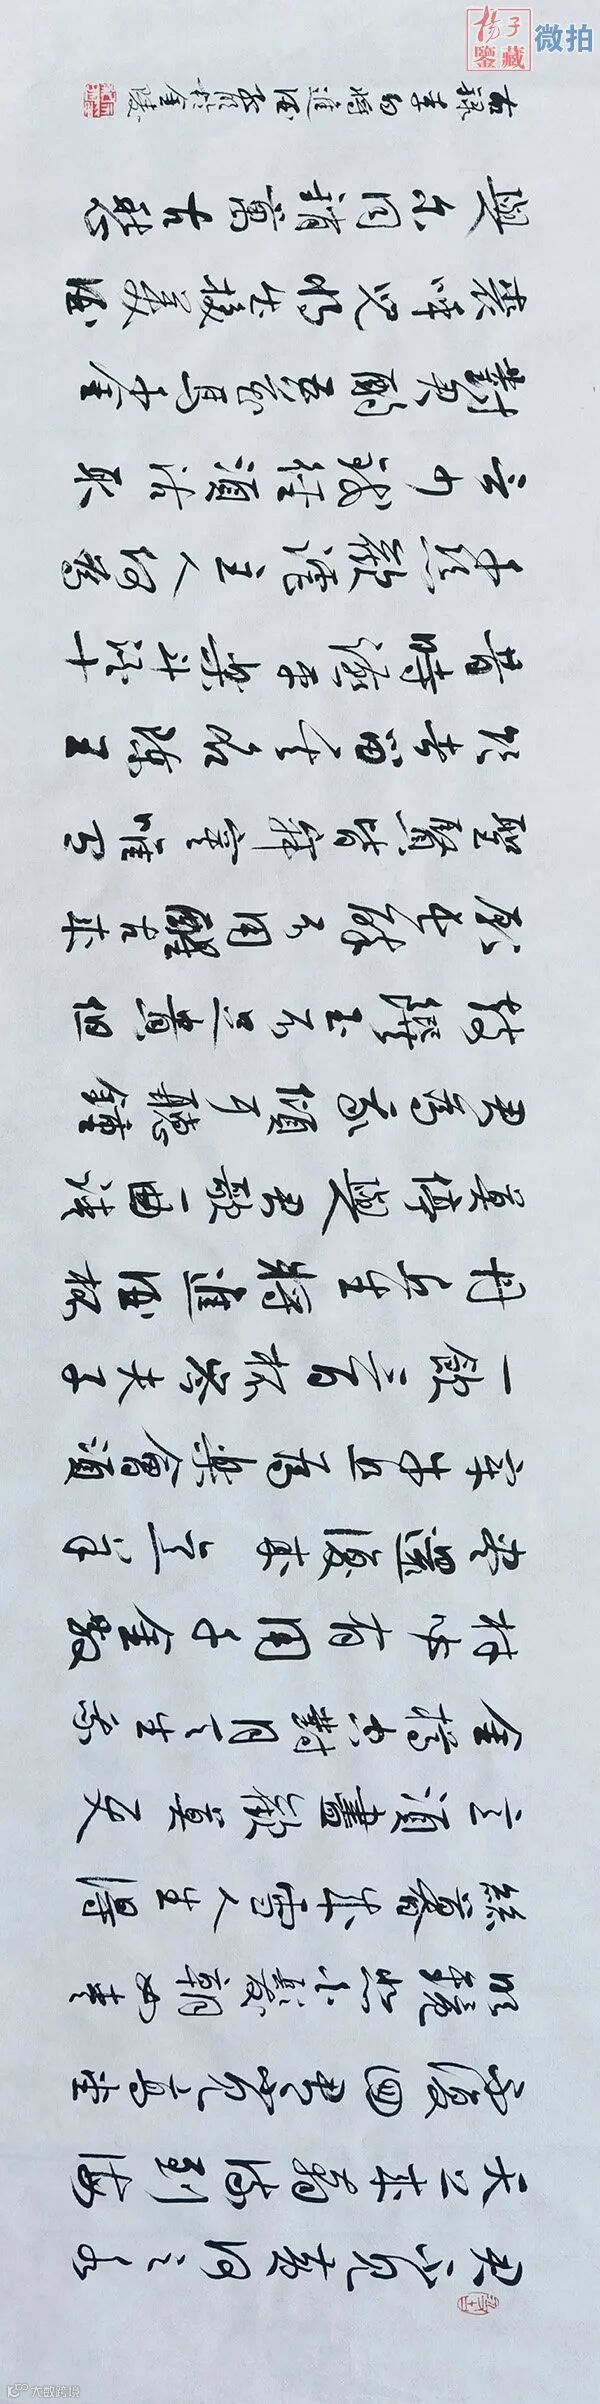 君不見黃河之水
天上来奔流到海
不復回君不見高堂
明鏡悲白髮朝如青
絲暮成雪人生得
意須盡歡莫使
金樽空對月天生我
材必有用千金散
盡還復来烹羊
宰牛且為樂會須
一飲三百杯岑夫子
丹丘生將進酒杯
莫停與君歌一曲請
君為我傾耳聽鐘
鼓饌玉不足貴但
願長醉不用醒古来
聖賢皆寂寞唯有
飲者留其名陳王
昔時宴平樂斗酒十
千恣歡謔主人何為
言少錢徑須沽取
對君酌五花馬千金
裘呼兒將出換美酒
與尔同銷萬古愁
右録李白將進酒 於金陵
揚子鑒藏
微拍
大数跨境